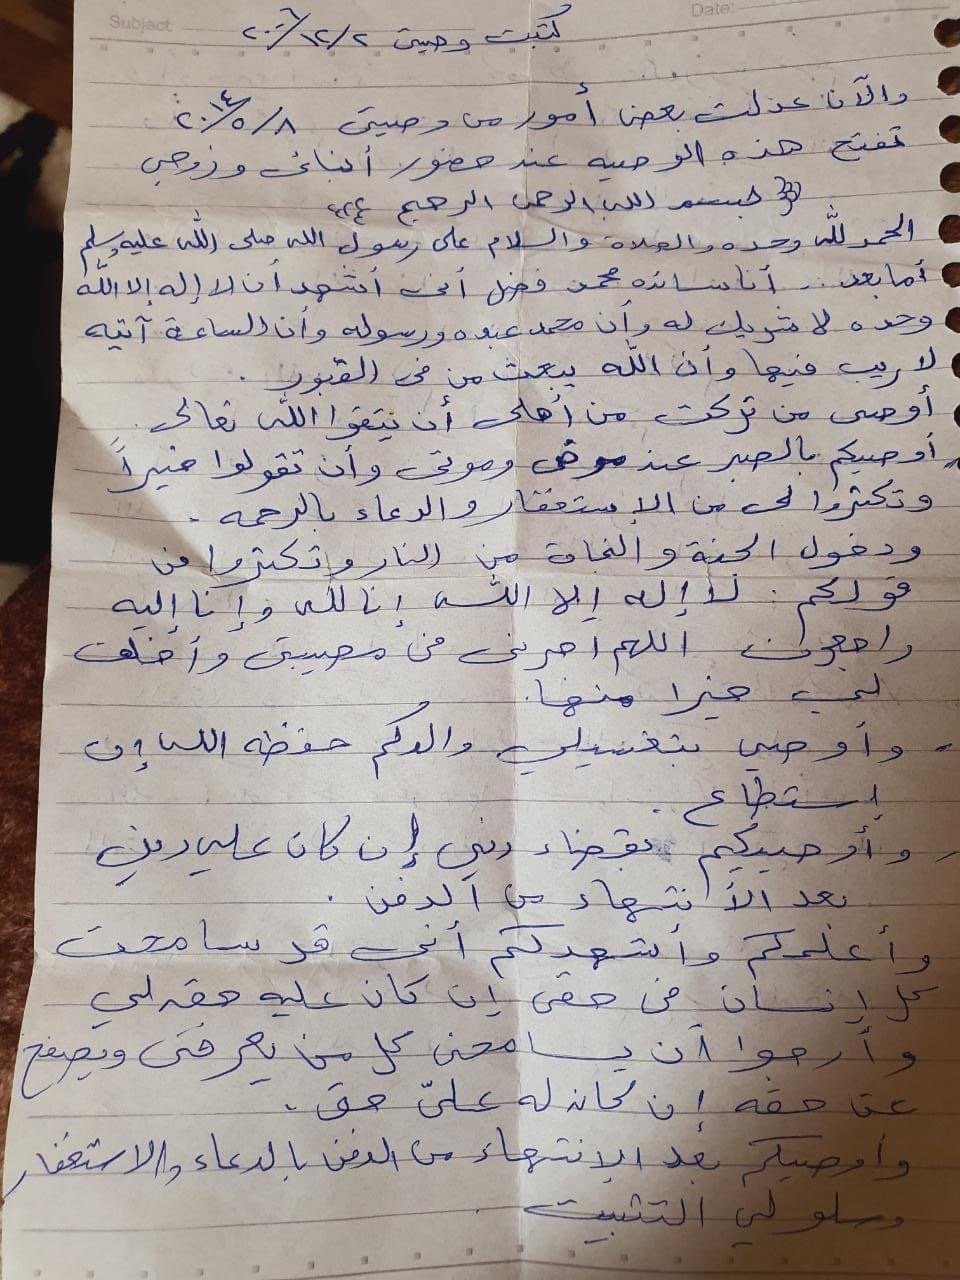 Subject
Date:
كتبت وصيتى ٢/١٢/٢٠٠٦
والآن عدلت بعض أمور من وصيتى ٨/٥/٢٠١٤
تفتح هذه الوصيه عند حضور أبنائى وزوجى
بسم الله الرحمن الرحيم
الحمد لله وحده والصلاة والسلام على رسول الله صلى الله عليه وسلم
أما بعد .. أنا محسن فضل أنى أشهد أن لا إله إلا الله
وحده لا شريك له وأن محمد عبده ورسوله وأن الساعة آتيه
لا ريب فيها وأن الله يبعث من فى القبور .
أوصى من تركت من أهلى أن يتقوا الله تعالى .
أوصيكم بالصبر عند وموتى وأن تقولوا خيراً
وتكثروا لى من الإستغفار والدعاء بالرحمه .
ودخول الجنة والنجاة من النار وتكثروا من
قولكم : لا إله إلا الله إنا لله وإنا إليه
راجعون اللهم اجرنى فى مصيبتى وأخلف
لى خيرا منها .
- وأوصي بتغسيلي والدكم حفظه الله إن
إستطاع .
- وأوصيكم بقضاء ديني إن كان علي دين
بعد الأنتهاء من الدفن .
وأعلمكم وأشهدكم أنى قد سامحت
كل إنسان فى حقى إن كان عليه حقه لي
وأرجوا أن يسامحنى كل من يعرفنى ويصفح
عن حقه إن كان له عليّ حق .
وأوصيكم بعد الإنتهاء من الدفن بالدعاء والاستغفار
وسلو لي التثبيت .